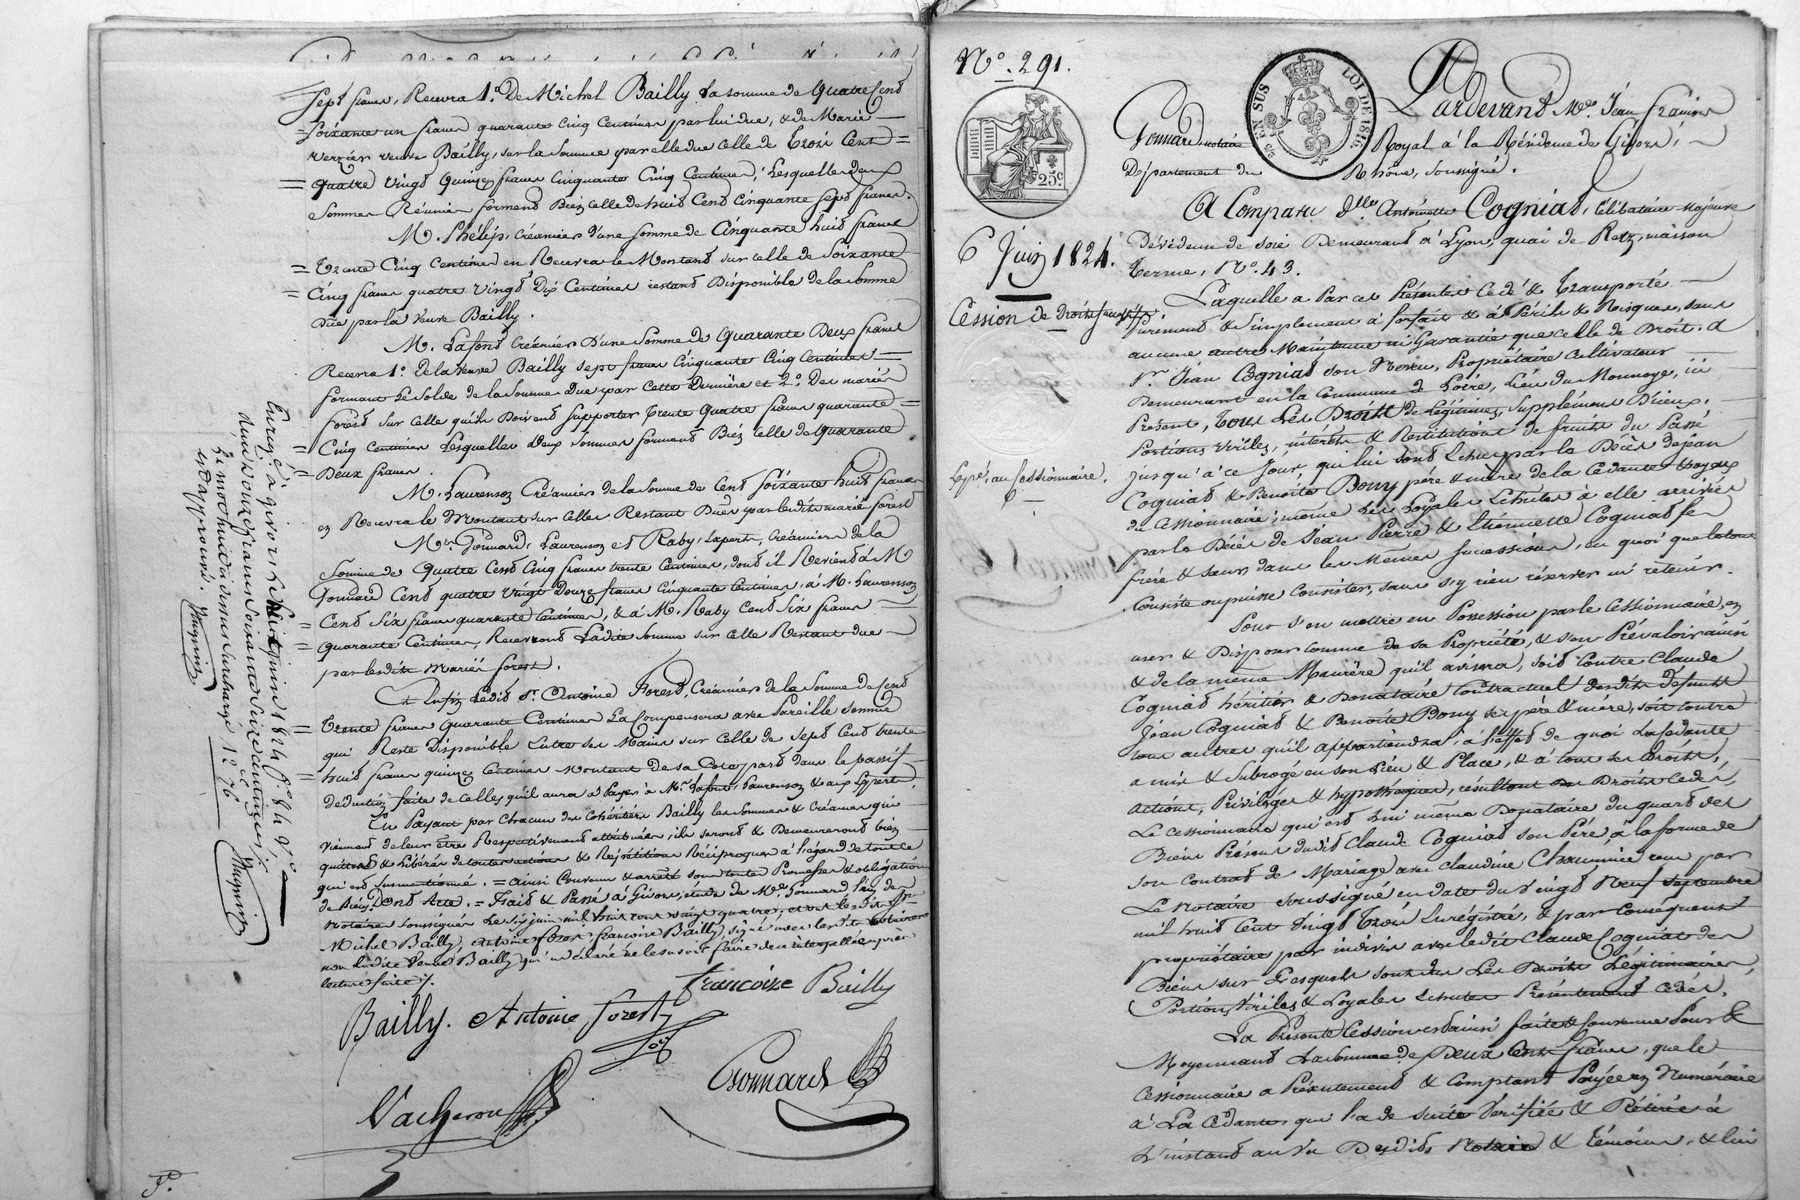 Sept francs, Recevra 1.° De Michel Bailly La somme de Quatre Cent
= Soixante un francs quarante cinq Centimes par lui due, & de Marie
Verrier veuve Bailly, sur la Somme par elle due celle de Trois Cent =
= quatre Vingt Quinze francs Cinquante Cinq Centimes, Lesquelles deux
Sommes Réunies forment Bien celle de huit Cent Cinquante Sept francs.
M. Phélip, Créancier d'une Somme de Cinquante huit francs
= Trente Cinq Centimes en Recevra le Montant sur celle de Soixante
= Cinq francs quatre Vingt Dix Centimes restant Disponible de la Somme
Due par la Veuve Bailly.
M. Lafond Créancier D'une Somme de Quarante Deux francs
Recevra 1.° de la Veuve Bailly Sept francs Cinquante Cinq Centimes
formant Le Solde de la Somme Due par Cette Dernière et 2.° Des mariés
Forest sur Celle qu'ils Doivent supporter Trente Quatre francs quarante =
= Cinq Centimes Lesquelles Deux Sommes forment Bien Celle de Quarante
= Deux francs.
M. Laurenson Créancier de la Somme de Cent Soixante huit francs
en Recevra le Montant sur Celles Restant Dues par lesdits mariés Forest
Mrs. Gonnard, Laurenson et Raby, experts, Créanciers de la
Somme de Quatre Cent Cinq francs trente Centimes, dont il Revient à M
Gonnard Cent quatre Vingt Douze francs Cinquante Centimes, à M. Laurenson
= Cent Six francs quarante Centimes, & à M. Raby Cent Six francs
= quarante Centimes, Recevront Ladite Somme sur celle Restant due
par lesdits Mariés Forest.
Et Enfin Ledit Sr. Antoine Forest, Créancier de la Somme de Cent
= Trente francs Quarante Centimes La Compensera avec Pareille Somme
qui Reste Disponible Entre ses Mains sur Celle de Sept Cent trente
= huit francs quinze Centimes Montant de sa Cote part dans le passif
déduction faite de Celles qu'il aura à Payer à Mrs. Lafond, Laurenson & aux Experts.
En Payant par Chacun des Cohéritiers Bailly les Sommes & Créances qui
Viennent de leur être Respectivement attribuées, ils seront & Demeureront bien
quittes & Libérés de toutes actions & Répétitions Réciproques à l'égard de tout ce
qui est Susmentionné. = ainsi Convenu & arrêté sous toute Promesses & obligations
de Biens. Dont Acte. = Fait & Passé à Givors, étude de Me. Gonnard l'un des
Notaires soussignés Le six juin mil huit cent vingt quatre, et ont lesdits Srs.
Michel Bailly, Antoine Forest, françoise Bailly, signé avec les Notaires
non ladite Veuve Bailly qui a déclaré ne le savoir faire de ce interpellée après
lecture faite ./.
françoise Bailly
Bailly. Antoine forest
Gonnard
Vacheron
Enreg.é à Givors le quinze juin 1824 f.° 84 V.°
Reçu onze francs soixante dix centimes
Le mot huit ci dessus surchargé
est approuvé.
P.
N.° 291.
EN SUS
LOI DE 1816.
25c
6 Juin 1824.
Cession de droits successifs
Expé. au Cessionnaire.
Pardevant Me. Jean François
Gonnard notaire Royal à la Résidence de Givors,
Département du Rhône, soussigné.
A Comparu dlle. Antoinette Cogniat, Célibataire Majeure
Dévideuse de soie Demeurant à Lyon, quai de Retz, maison
Terme, N.° 43.
Laquelle a Par ces Présentes Cédé & Transporté
purement & Simplement à forfait & à Périls & Risques, sans
aucune autre Maintenue ni Garantie que celle de Droit. à
Sr. Jean Cogniat son Neveu, Propriétaire Cultivateur
Demeurant en la Commune de Loire, Lieu du Monnoye, ici
Présent, Tous Les Droits de Légitimes, Supplément d'iceux,
Portions Viriles, intérêts & Restitutions de fruits du Passé
jusqu'à ce Jour, qui lui sont Echus par le Décès de Jean
Cogniat & Benoîte Bony père & mère de la Cédante & ayeux
du Cessionnaire; même Les Loyales Echutes à elle arrivées
par le Décès de Jean Pierre & Etiennette Cogniat ses
frère & sœur dans les Mêmes Successions, en quoi que le tout
Consiste ou puisse Consister, sans s'y rien réserver ni retenir.
Pour s'en mettre en Possession par le Cessionnaire, en
user & Disposer comme de sa Propriété, & s'en Prévaloir ainsi
& de la même Manière qu'il avisera, soit Contre Claude
Cogniat héritier & Donataire Contractuel desdits défunts
Jean Cogniat & Benoîte Bony ses père & mère, soit contre
tous autres qu'il appartiendra, à l'effet de quoi La Cédante
a mis & Subrogé en son Lieu & Place, & à tous ses Droits,
actions, Privilèges & hypothèques, résultant des Droits Cédés,
Le cessionnaire qui est lui même Donataire du quart des
Biens Présents dudit Claude Cogniat son Père, à la forme de
son Contrat de Mariage avec Claudine Chaumier reçu par
Le Notaire soussigné en date du Vingt Neuf Septembre
mil huit Cent Vingt Trois Enregistré, & par Conséquent
propriétaire par indivis avec ledit Claude Cogniat des
Biens sur Lesquels sont dus Les Droits Légitimaires,
Portions Viriles & Loyales Echutes Présentement Cédés.
La Présente Cession est ainsi faite & Convenue Pour &
Moyennant La Somme de Deux Cents francs, que le
Cessionnaire a Présentement & Comptant Payée en Numéraire
à La Cédante, qui l'a de suite Vérifiée & Retirée à
L'instant au Vu Desdits Notaire & Témoins, & lui